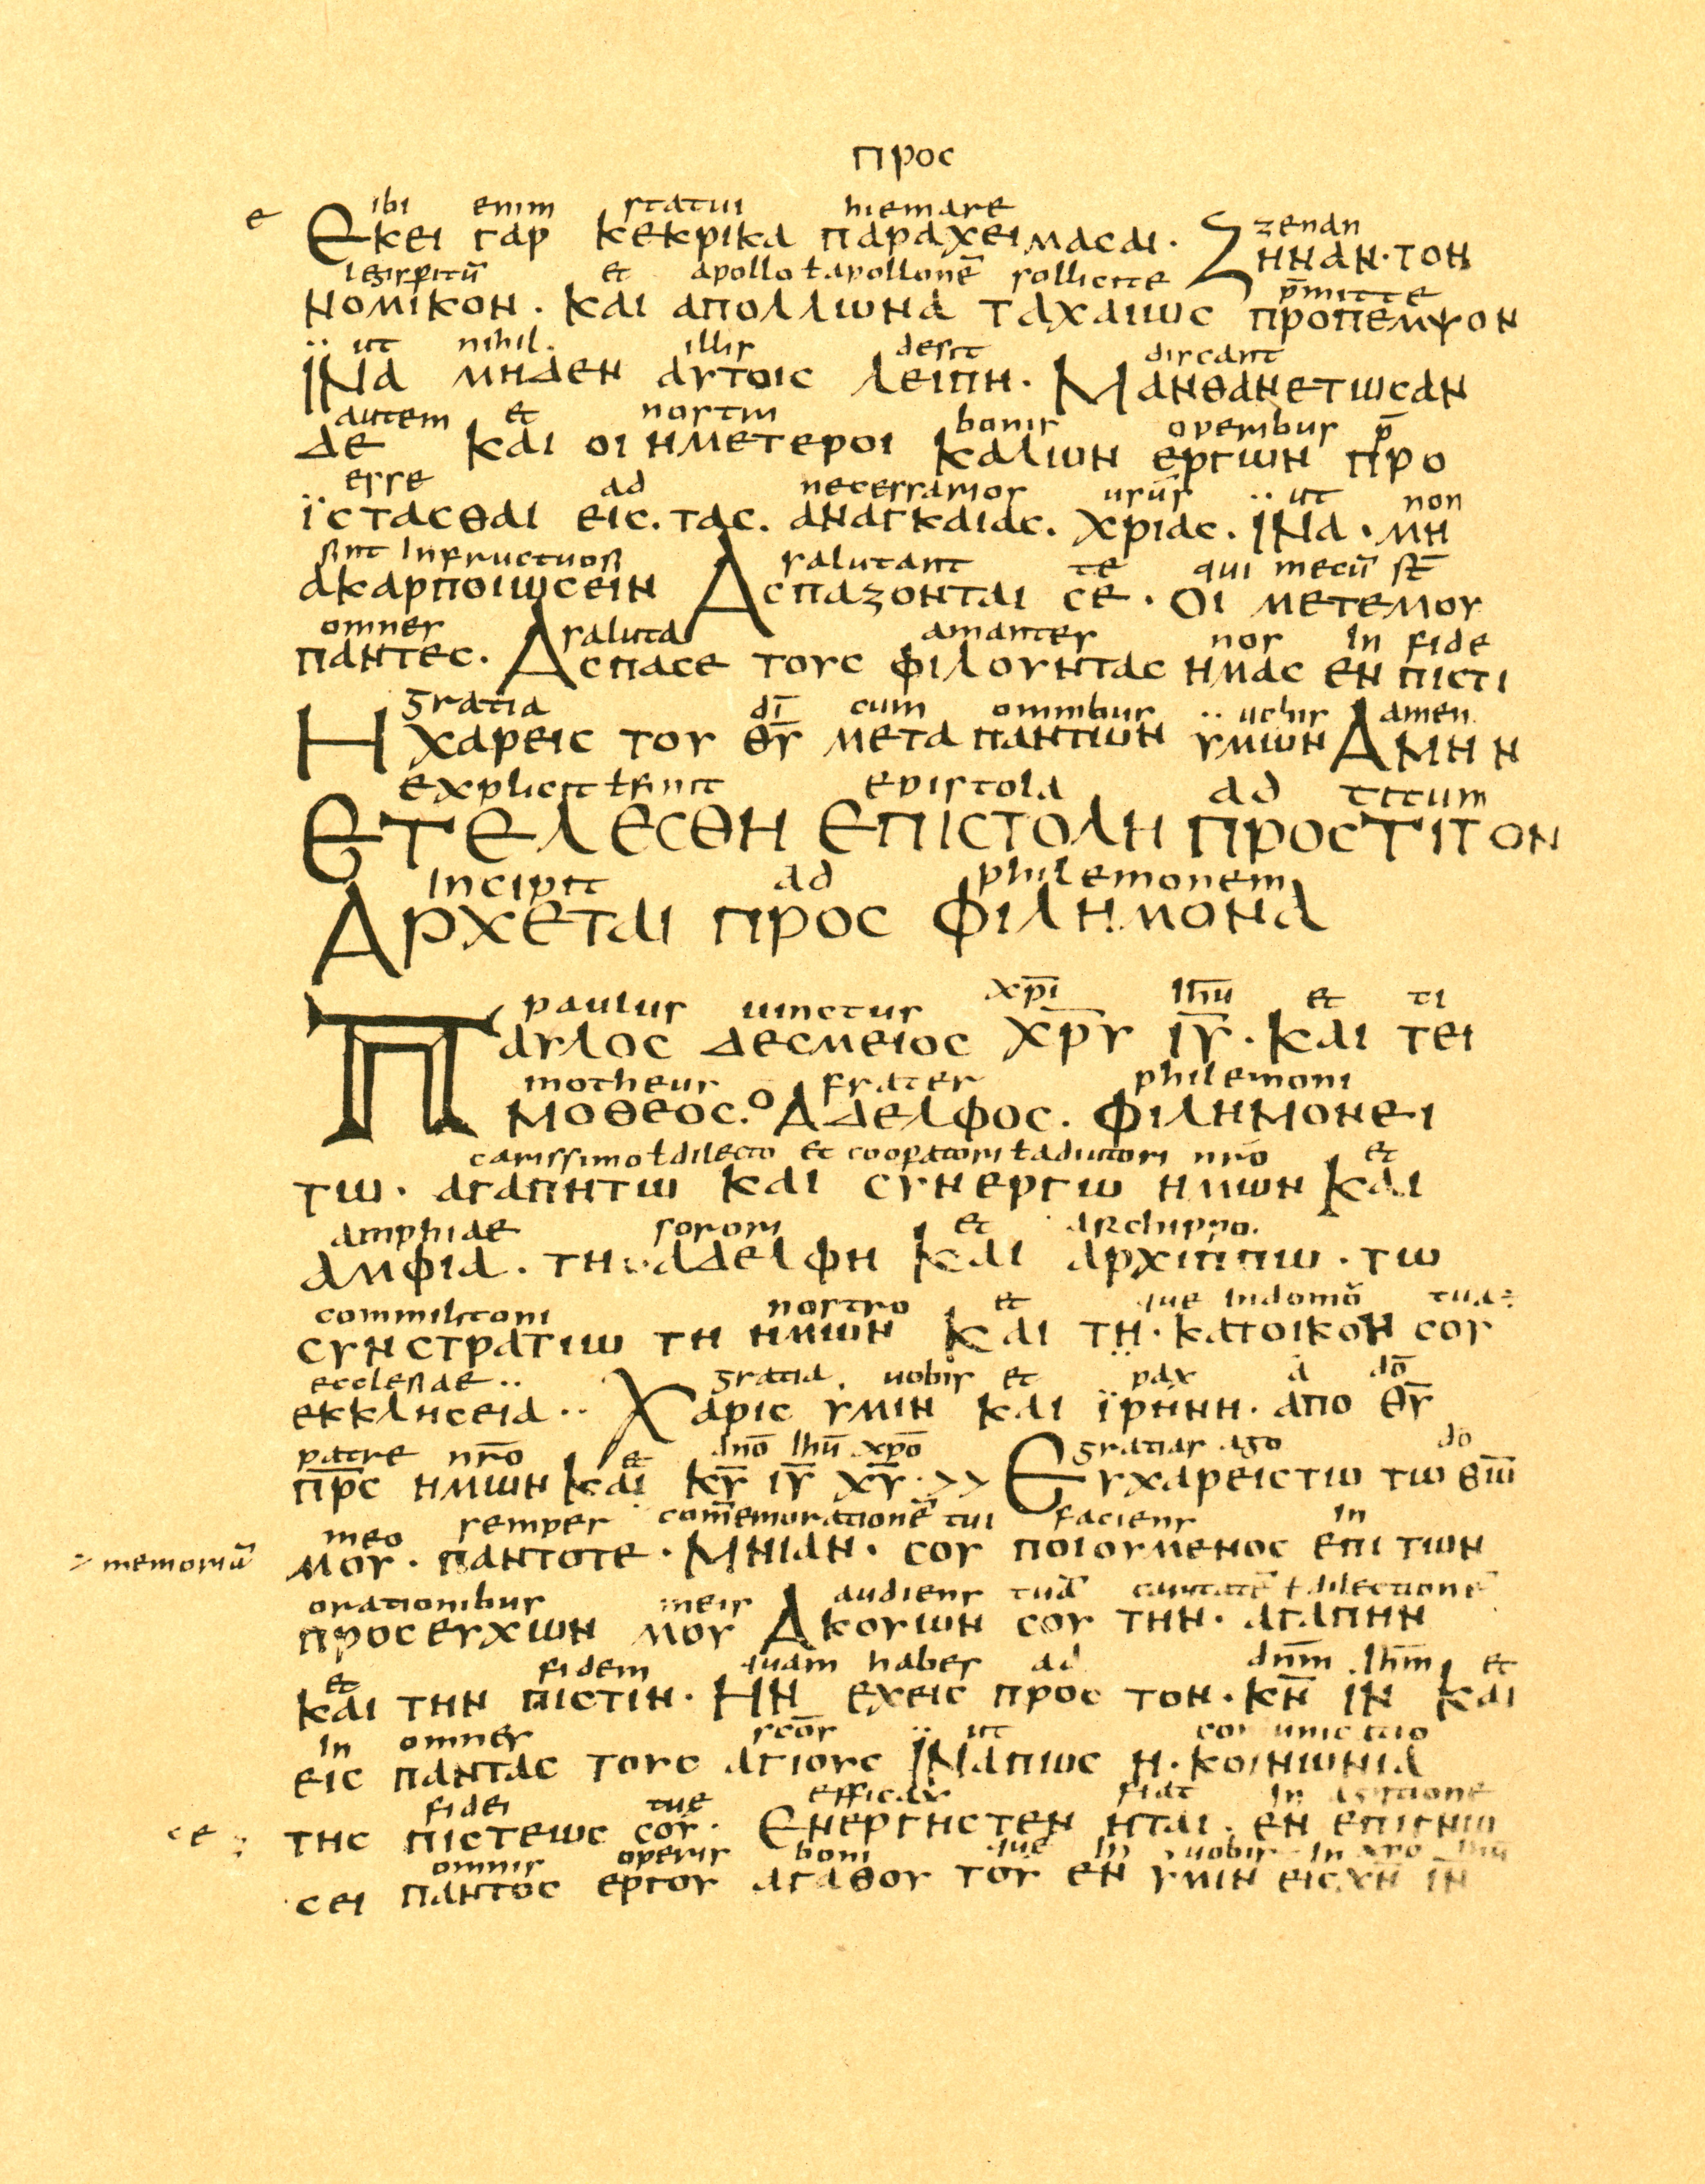 προς
ε
ibi enim statui hiemare zenan
Εκει γαρ κεκρικα παραχειμασαι· Ζηναν·τον
legisperitū et apollo ł apollonē sollicite p̄mitte
νομικον. και απολλωνα ταχαιως προπεμψον
ut nihil. illis desit discant
ϊνα μηδεν αυτοις λειπη· Μανθανετωσαν
autem et nostri bonis operibus p̄
δε και οι ημετεροι καλων εργων προ
esse ad necessarios usus ut non
ϊστασθαι εις.τας. αναγκαιας. χριας. ινα·μη
sint infructuosi salutant te qui mecū st̄
ακαρποιωσειν Ασπαζονται σε· οι μετεμου
omnes saluta amantes nos in fide
παντες. Ασπασε τους φιλουντας ημας εν πιστι
gratia dī cum omnibus uobis amen
Η χαρεις του θ̄ῡ μετα παντων υμων Αμην
explicit ł finit epistola ad titum
Ετελεσθη επιστολη προς Τιτον
incipit ad philemonem
Αρχεται προς φιλημονα
paulus uinctus xp̄i ih̄u et ti
Παυλος δεσμειος χ̄ρ̄ῡ ῑῡ· και τει
motheus frater philemoni
μοθεος.ο Αδελφος. φιλημονει
carissimo ł dilecto et cooperatori ł adiutori nr̄o et
τω· αγαπητω και συνεργω ημων και
amphiae sorori et archippo.
αμφια. τη αδελφη και αρχιππω·τω
commilitoni nostro et que in domō tua
συνστρατιω τη ημων και τη·κατοικον σου
ecclesiae··
gratia. uobis et pax a dō
εκκλησεια·· Χαρις υμιν και ϊρηνη. απο θ̄ῡ
patre nr̄o et dn̄o ih̄u xp̄o gratias ago dō
π̄ρ̄ς ημων και κ̄ῡ ῑῡ χ̄ῡ·>> Ευχαρειστω τω θ̄ω̄
meo semper com̄emorationē tui faciens in
memoriā μου· παντοτε· Μνιαν· σου ποιουμενος επι των
orationibus meis audiens tuā caritatē ł dilectionē
προσευχων μου Ακουων σου την· αγαπην
et fidem quam habes ad dn̄m ih̄m et
και την πιστιν· Ην εχεις προς τον·κ̄ν̄ ῑν̄ και
in omnes sc̄os ut
εις παντας τους αγιους ϊναπως η·κοινωνια
fidei tue efficax fiat in
τησ πιστεως σου· Ενεργης τεν ηται. εν επιγνω
σε
omnis operis boni que in uobis in xpo ihu
σει παντος εργου αγαθου του εν υμιν εις χ̄ν̄ ῑν̄